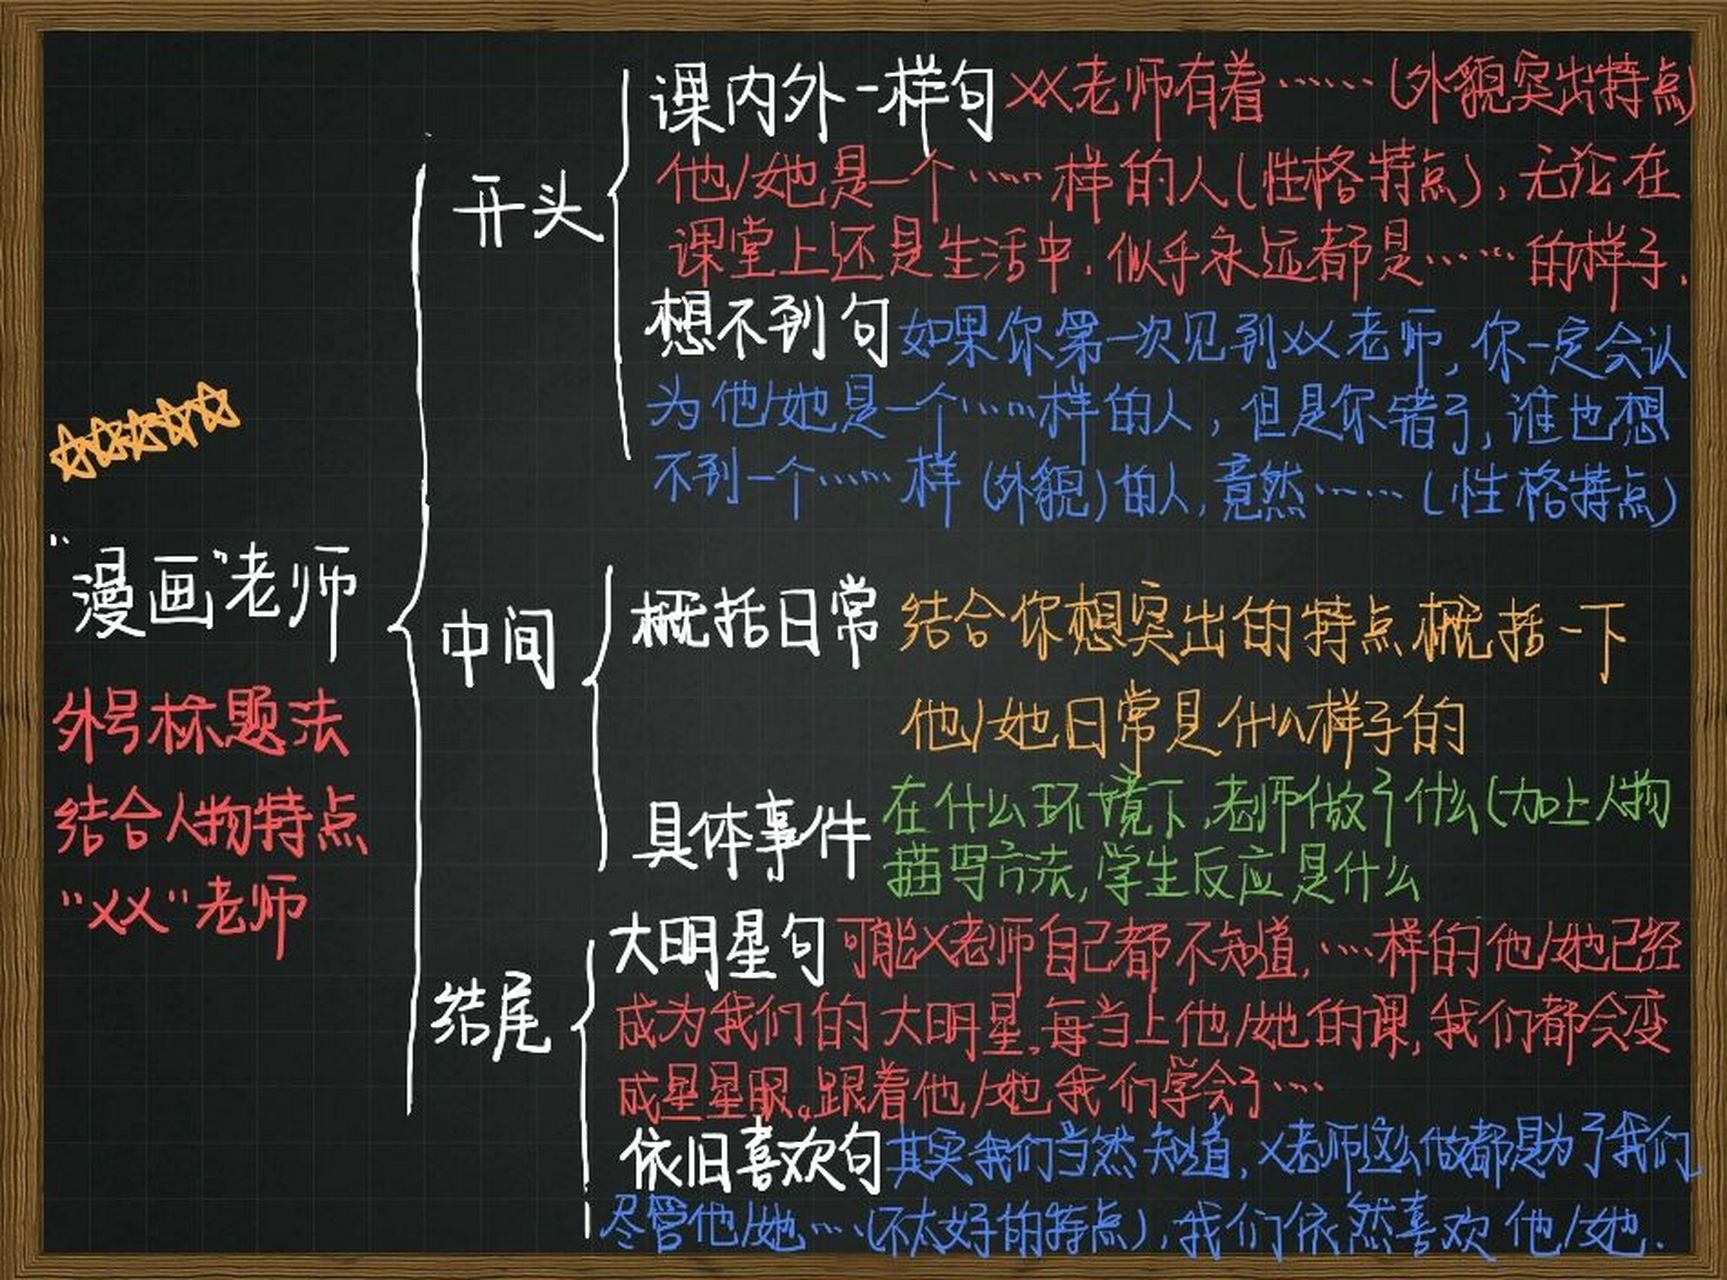 "漫画"老师
外号标题法
结合人物特点
"XX"老师
开头
课内外一样句 XX老师有着……(外貌突出特点)
他/她是一个……样的人(性格特点),无论在
课堂上还是生活中,似乎永远都是……的样子.
想不到句 如果你第一次见到XX老师,你一定会认
为他/她是一个……样的人,但是你错了,谁也想
不到一个……样(外貌)的人,竟然……(性格特点)
中间
概括日常 结合你想突出的特点概括一下
他/她日常是什么样子的
具体事件 在什么环境下,老师做了什么(加上人物
描写方法,学生反应是什么
结尾
大明星句 可能X老师自己都不知道,……样的他/她已经
成为我们的大明星,每当上他/她的课,我们都会变
成星星眼。跟着他/她我们学会了……
依旧喜欢句 其实我们当然知道,X老师这么做都是为了我们,
尽管他/她……(不太好的特点),我们依然喜欢他/她.